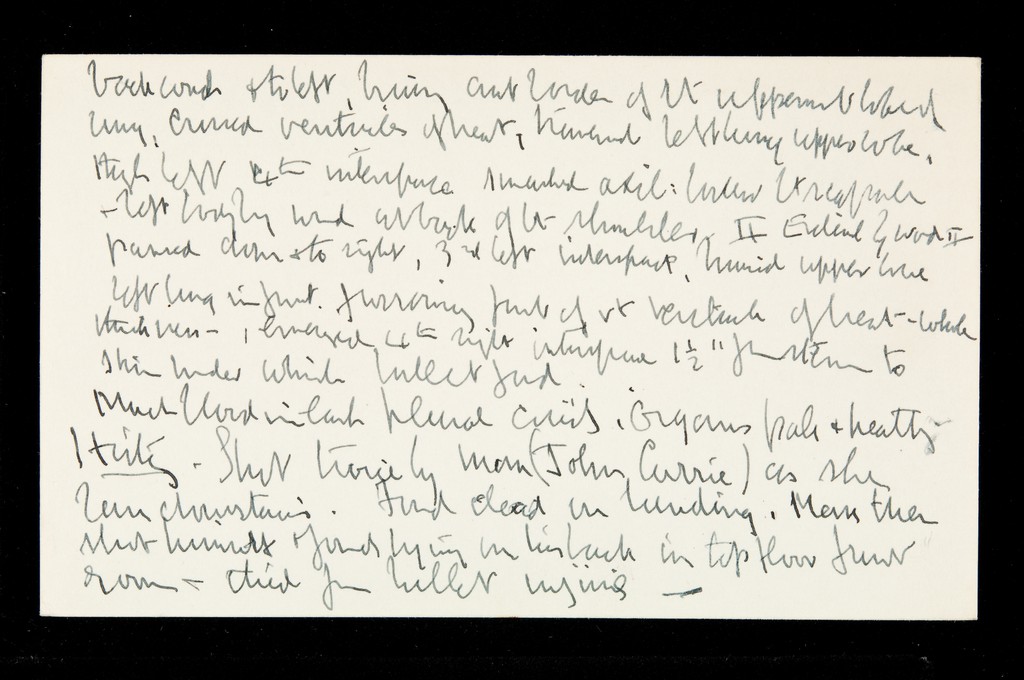 backwards & to left, bruising ant border of lt uppermost lobe of
lung, crossed ventricles of heart, traversed left lung upper lobe,
thro left 4th interspace smashed axil: border lt scapula
& left body by wound at back of lt shoulder. II Entered by wound II
passed down & to right, 3rd left interspace, bruised upper lobe
left lung in front. furrowing front of rt ventricle of heart - whole
thickness -, emerged 4th right interspace 1½" from sternum to
skin under which bullet found.
Much blood in each pleural cavity. Organs pale & healthy
History - Shot twice by man (John Currie) as she
ran downstairs. Found dead on landing. Man then
shot himself & found lying on his back in top floor front
room - died from bullet injuries -